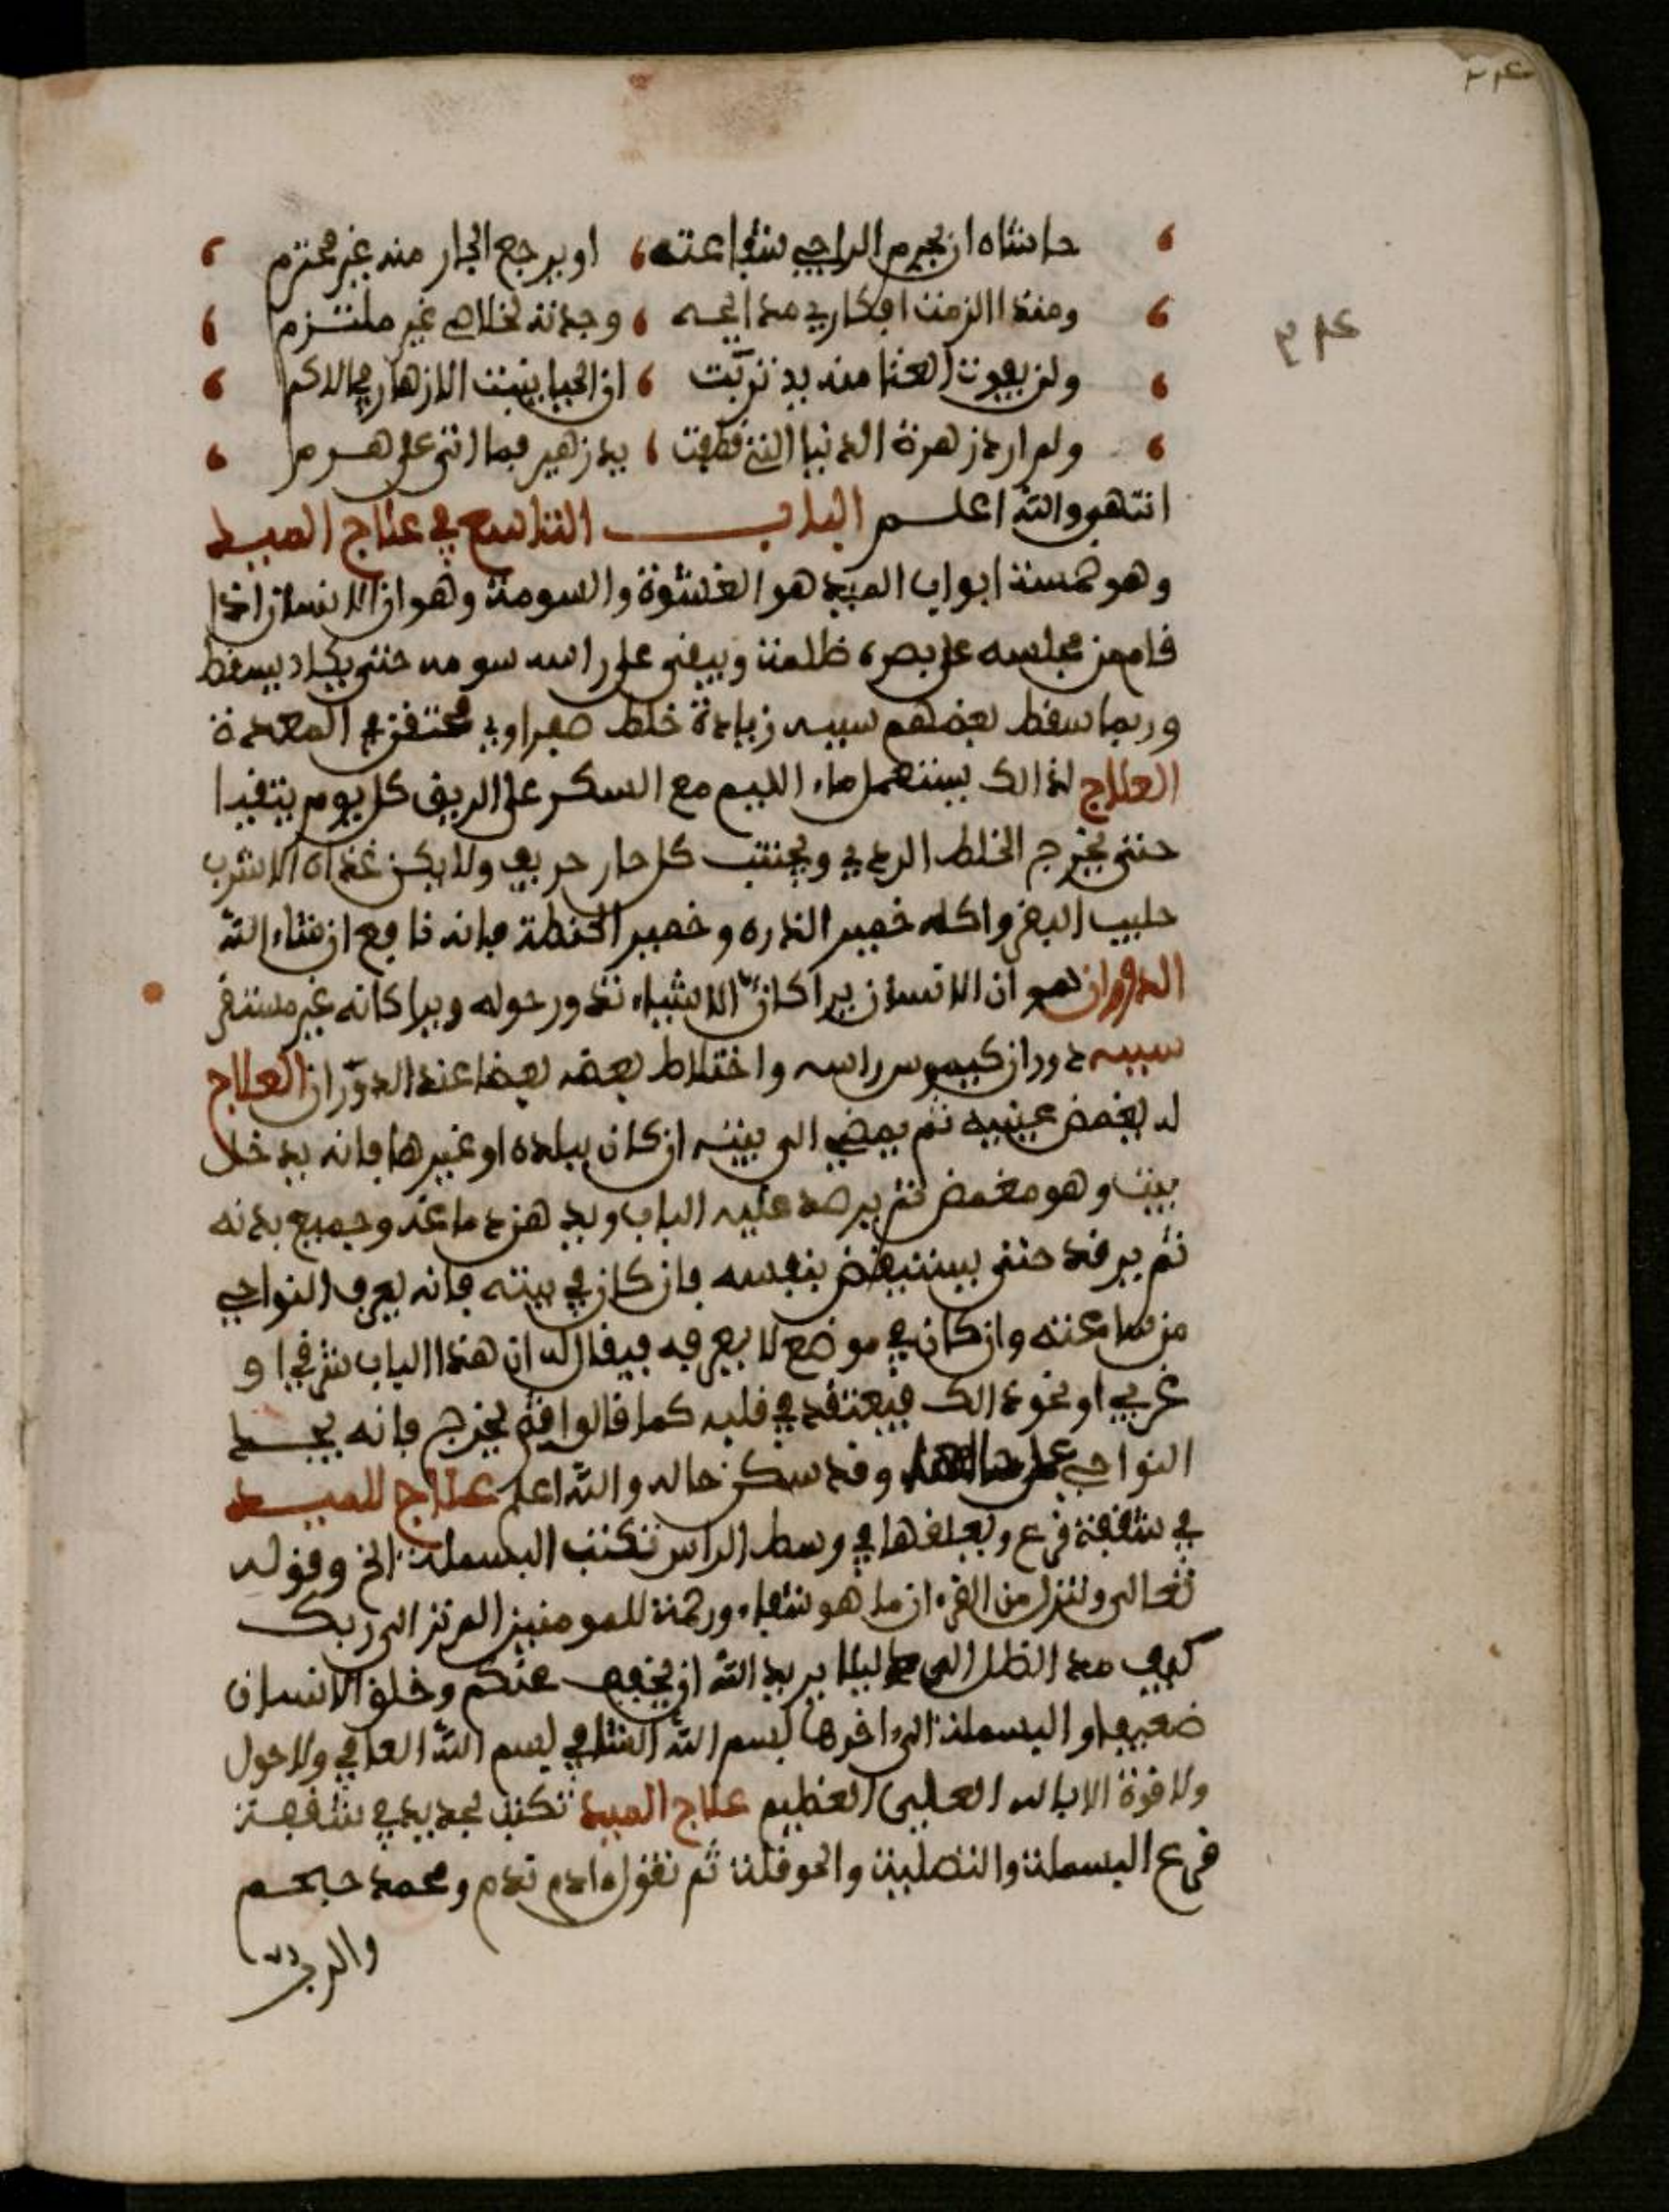 حاشاه ان يحرم الراجي شفاعته او يرجع الجار منه غير محترم
ومنذ الزمت افكاري مدايحه وجدته لخلاصي غير ملتزم
ولن يفوت الغنا منه يد تربت ان الحيا ينبت الازهار في الاكم
ولم ارد زهرة الدنيا التي قطفت يد زهير بما اثنى على هرم
انتهى والله اعلم الباب التاسع في علاج الميد
وهو خمسة ابواب الميد هو الغشوة والسومة وهو ان الانسان اذا
قام من مجلسه على بصره ظلمة ويبقى على راسه سومه حتى يكاد يسقط
وربما سقط بعضهم سببه زيادة خلط صفراوي محتقن في المعدة
العلاج لذالك يستعمل ماء الليم مع السكر على الريق كل يوم يتقيا
حتى يخرج الخلط الردي ويجتنب كل حار حريف ولا يكن غذاه الا شرب
حليب البقر واكله خمير الذره وخمير الحنطة فانه نافع ان شاء الله
الدوران هو ان الانسان يرا كان الاشياء تدور حوله ويرا كانه غير مستقر
سببه دوران كيموس راسه واختلاط بعضه بعضا عند الدوران العلاج
له يغمض عينيه ثم يمضي الى بيته ان كان ببلده او غيرها فانه يدخل
بيت وهو مغمض ثم يرصد عليه الباب ويدهن دماغه وجميع بدنه
ثم يرقد حتى يستيقض بنفسه فان كان في بيته فانه يعرف النواحي
من ساعته وان كان في موضع لا يعرفه فيقال له ان هذا الباب شرقي او
غربي او نحو ذالك فيعتقد في قلبه كما قالوا ثم يخرج فانه يجد
النواحي على حالها وقد سكن حاله والله اعلم علاج للميد
في شقفة قرع ويعلقها في وسط الراس تكتب البسملة الخ وقوله
تعالى وننزل من القرءان ما هو شفاء ورحمة للمومنين الم تر الى ربك
كيف مد الظل الى دليلا يريد الله ان يخفف عنكم وخلق الانسان
ضعيفا والبسملة الى اخرها بسم الله الشافي بسم الله العافي ولا حول
ولا قوة الا بالله العلي العظيم علاج الميد تكتب بحديد في شقفة
قرع البسملة والتصلية والحوقلة ثم تقول ادم تدم ومحمد حبحم